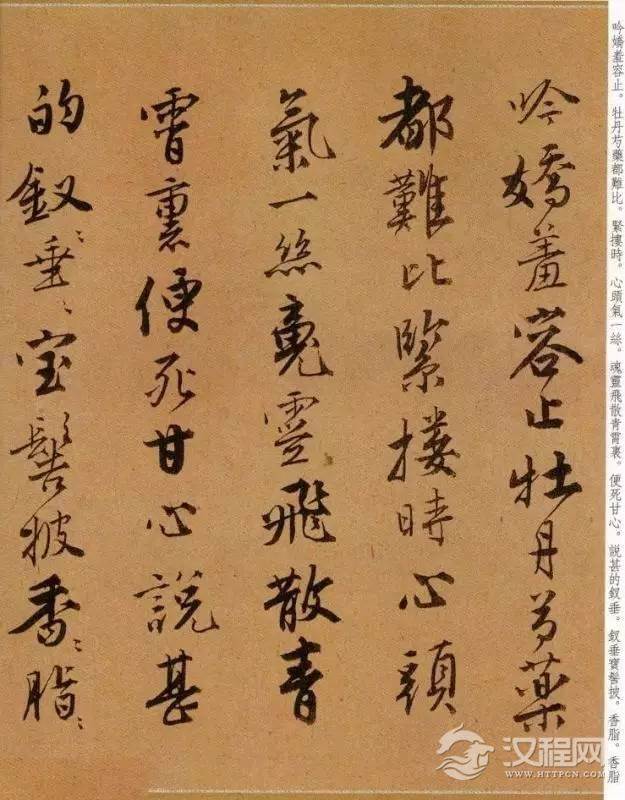 吟嬌羞容止牡丹芍藥
都難比緊摟時心頭
氣一絲䰟靈飛散青
霄裏便死甘心說甚
的釵〻垂〻宝髻披香〻脂〻
吟嬌羞容止。牡丹芍藥都難比。緊摟時。心頭氣一絲。魂靈飛散青霄裏。便死甘心。説甚的釵垂。釵垂寶髻披。香脂。香脂
汉程网
WWW.HTTPCN.COM